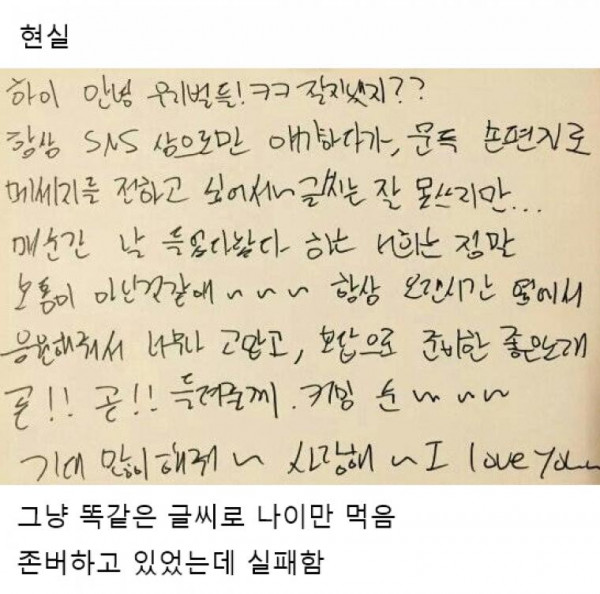 현실
하이 안녕 우리벌들! ㅋㅋ 잘지냈지??
항상 SNS 상으로만 얘기하다가, 문득 손편지로
메세지를 전하고 싶어서~ 글씨는 잘 못쓰지만...
매순간 날 들었다놨다 하는 너희는 정말
보통이 아닌것같애 ~ ~ ~ 항상 오랜시간 옆에서
응원해줘서 너무나 고맙고, 보답으로 준비한 좋은노래
곧!! 곧!! 들려줄께. 커밍 순 ~ ~ ~
기대 많이 해줘 ~ 사랑해 ~ I love You~
그냥 똑같은 글씨로 나이만 먹음
존버하고 있었는데 실패함